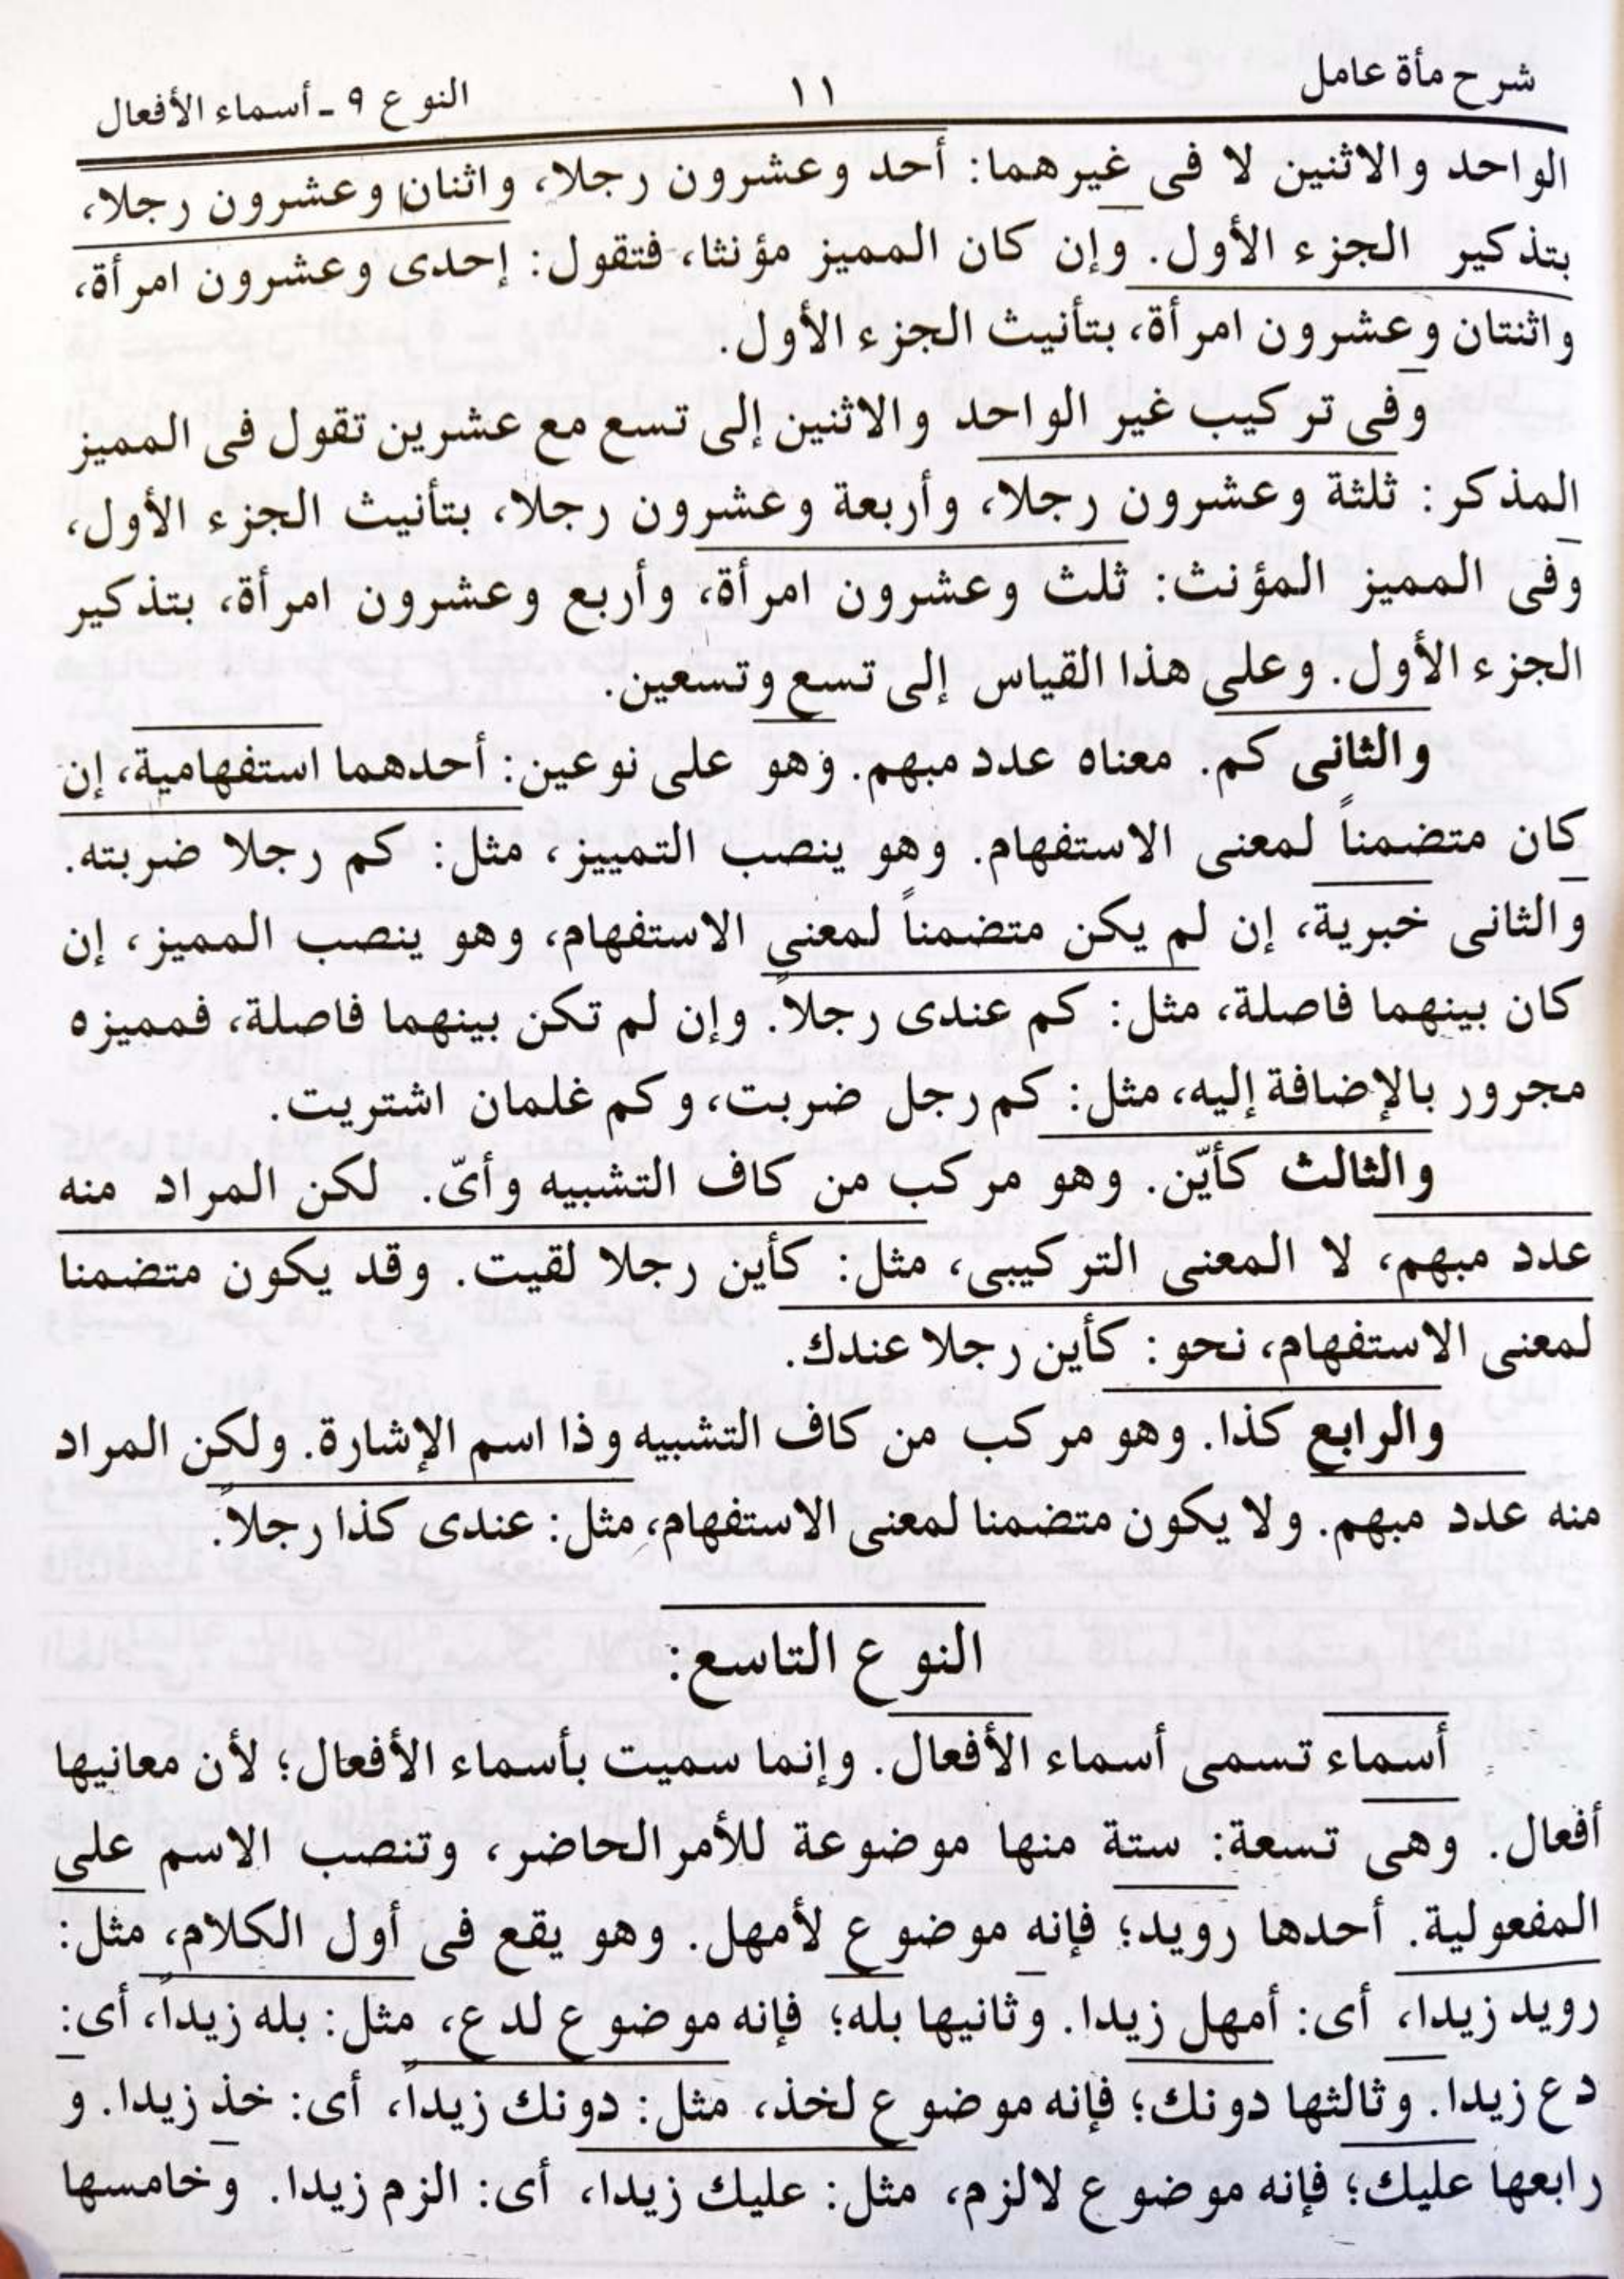 شرح مأة عامل ١١ النوع ٩ ـ أسماء الأفعال
الواحد والاثنين لا فى غيرهما: أحد وعشرون رجلا، واثنان وعشرون رجلا،
بتذكير الجزء الأول. وإن كان المميز مؤنثا، فتقول: إحدى وعشرون امرأة،
واثنتان وعشرون امرأة، بتأنيث الجزء الأول.
وفى تركيب غير الواحد والاثنين إلى تسع مع عشرين تقول فى المميز
المذكر: ثلثة وعشرون رجلا، وأربعة وعشرون رجلا، بتأنيث الجزء الأول،
وفى المميز المؤنث: ثلث وعشرون امرأة، وأربع وعشرون امرأة، بتذكير
الجزء الأول. وعلى هذا القياس إلى تسع وتسعين.
والثانى كم. معناه عدد مبهم. وهو على نوعين: أحدهما استفهامية، إن
كان متضمناً لمعنى الاستفهام. وهو ينصب التمييز، مثل: كم رجلا ضربته.
والثانى خبرية، إن لم يكن متضمناً لمعنى الاستفهام، وهو ينصب المميز، إن
كان بينهما فاصلة، مثل: كم عندى رجلاً. وإن لم تكن بينهما فاصلة، فمميزه
مجرور بالإضافة إليه، مثل: كم رجل ضربت، وكم غلمان اشتريت.
والثالث كأيّن. وهو مركب من كاف التشبيه وأىّ. لكن المراد منه
عدد مبهم، لا المعنى التركيبى، مثل: كأين رجلا لقيت. وقد يكون متضمنا
لمعنى الاستفهام، نحو: كأين رجلا عندك.
والرابع كذا. وهو مركب من كاف التشبيه وذا اسم الإشارة. ولكن المراد
منه عدد مبهم. ولا يكون متضمنا لمعنى الاستفهام، مثل: عندى كذا رجلاً.
النوع التاسع:
أسماء تسمى أسماء الأفعال. وإنما سميت بأسماء الأفعال؛ لأن معانيها
أفعال. وهى تسعة: ستة منها موضوعة للأمر الحاضر، وتنصب الاسم على
المفعولية. أحدها رويد؛ فإنه موضوع لأمهل. وهو يقع فى أول الكلام، مثل:
رويد زيدا، أى: أمهل زيدا. وثانيها بله؛ فإنه موضوع لدع، مثل: بله زيداً، أى:
دع زيدا. وثالثها دونك؛ فإنه موضوع لخذ، مثل: دونك زيداً، أى: خذ زيدا. و
رابعها عليك؛ فإنه موضوع لالزم، مثل: عليك زيدا، أى: الزم زيدا. وخامسها